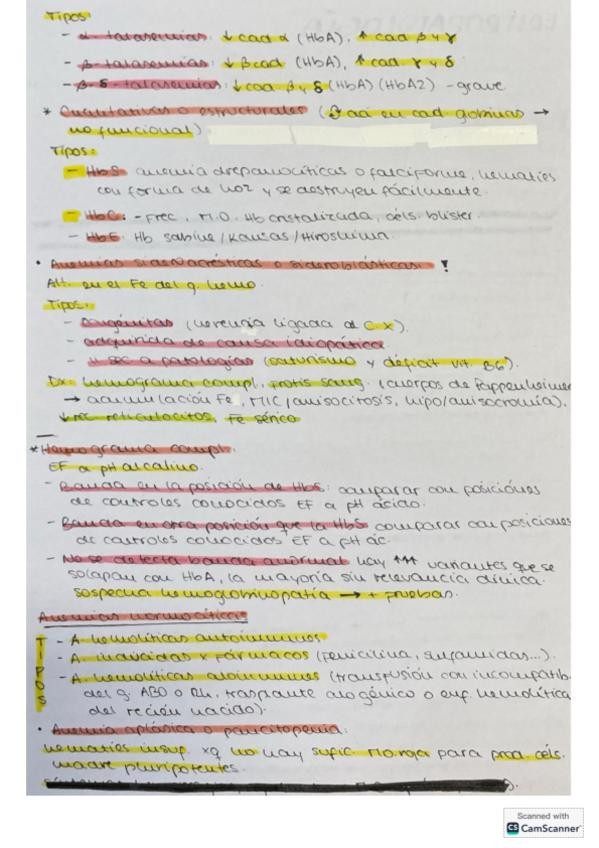 Tipos
- α-talasemias: ↓ cad α (HbA), ↑ cad β y γ
- β-talasemias: ↓ β cad (HbA), ↑ cad γ y δ
- β-δ talasemias: ↓ cad β y δ (HbA) (HbA2) - grave
* Cualitativas o estructurales ( aá en cad globinas →
no funcional)
Tipos:
- HbS: anemia drepanocíticas o falciforme, hematíes
con forma de hoz y se destruyen fácilmente.
- HbC: - Frec, M.O. Hb cristalizada, céls. blíster
- HbE: Hb sabine/Kansas/Hiroshima.
• Anemias sideroacrésticas o sideroblásticas: !
Alt. en el Fe del g. hemo.
Tipos:
- Congénitas (herencia ligada al C-X).
- adquirida de causa idiopática
- sec a patologías (saturismo y déficit vit. B6).
Dx: hemograma compl, frotis sang. (cuerpos de Pappenheimer
→ acumulación Fe, MIC/anisocitosis, hipo/anisocromía),
↓ rec reticulocitos, Fe sérico
* Hemograma compl.
EF a pH alcalino.
- Banda en la posición de HbS: comparar con posiciones
de controles conocidos EF a pH ácido.
- Banda en otra posición que la HbS comparar con posiciones
de controles conocidos EF a pH ác.
- No se detecta banda anormal hay ↑↑↑ variantes que se
solapan con HbA, la mayoría sin relevancia clínica.
sospecha hemoglobinopatía → + pruebas.
Anemias normocíticas
TIPOS
- A. hemolíticas autoinmunes
- A. inducidas x fármacos (Penicilina, sulfamidas...).
- A. hemolíticas aloinmunes (transfusión con incompatib.
del g. ABO o Rh, trasplante alogénico o enf. hemolítica
del recién nacido).
• Anemia aplásica o pancitopenia:
hematíes insuf. xq no hay sufic. M.O roja para prod. céls.
madre pluripotentes.
Scanned with
CS CamScanner